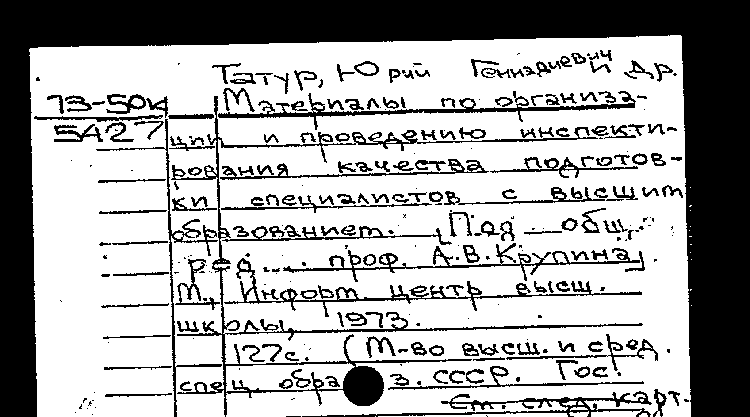 Татур, Юрий Геннадиевич и др.
73-50к
5427
Материалы по организа-
ции и проведению инспекти-
рования качества подготов-
ки специалистов с высшим
образованием. [Под общ.
ред.... проф. А.В.Крупина].
М., Информ. центр высш.
школы, 1973.
127с. (М-во высш. и сред.
спец. обра з. СССР. Гос.
См. след. карт.